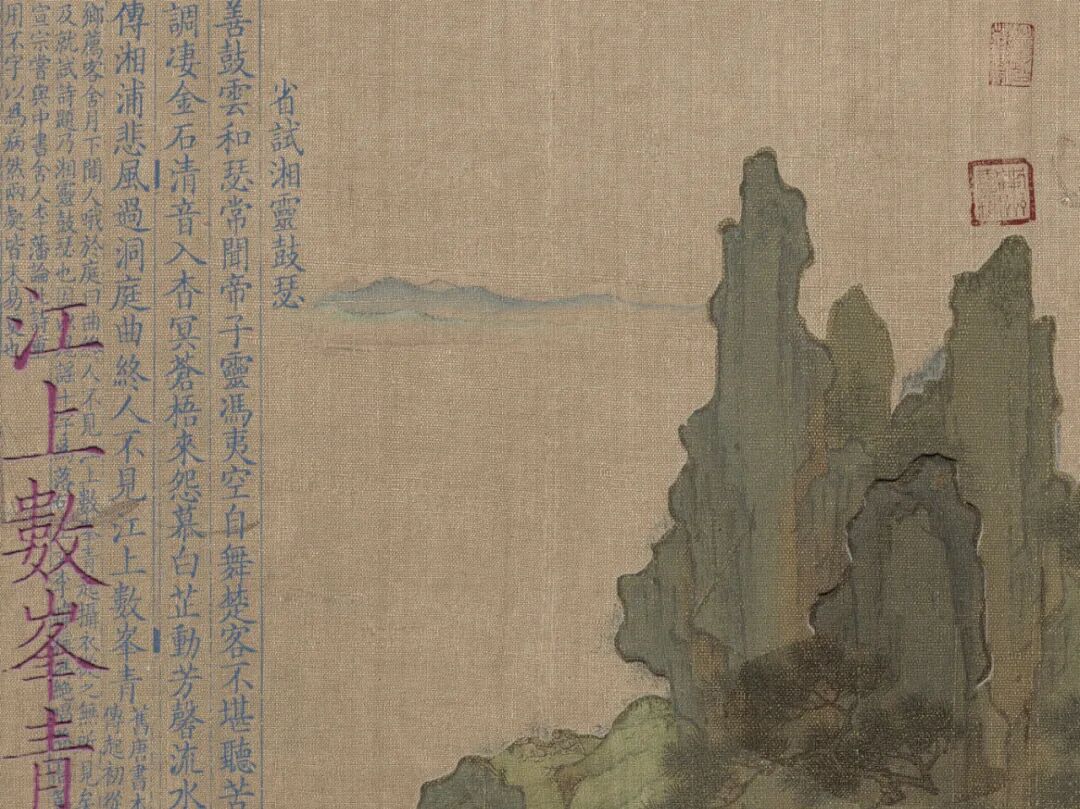 省試湘靈鼓瑟
善鼓雲和瑟常聞帝子靈馮夷空自舞楚客不堪聽苦
調凄金石清音入杳冥蒼梧來怨慕白芷動芳馨流水
傳湘浦悲風過洞庭曲終人不見江上數峯青
舊唐書本
傳起初從
鄉薦客舍月下聞人哦於庭曰曲終人不見江上數峯青起攝衣從之無所見矣
及就試詩題乃湘靈鼓瑟也謠十字為落
宣宗嘗與中書舍人李藩論
用不字以為病然兩處皆未易更也
江上數峯青